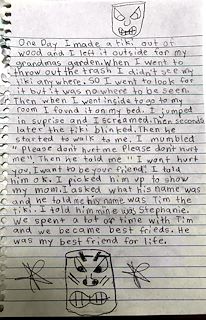 One Day I made a tiki out of
wood and I left it outside for my
grandmas garden. When I went to
throw out the trash I didn't see my
tiki any where. SO I went to look for
it but it was no where to be seen.
Then when I went inside to go to my
room I found it on my bed. I jumped
in suprise and I screamed. Then seconds
later the tiki blinked. Then he
started to walk to me. I mumbled
"Please dont hurt me Please dont hurt
me". Then he told me "I wont hurt
you, I want to be your friend". I told
him OK. I picked him up to show
my mom. I asked what his name was
and he told me his name was Tim the
tiki. I told him mine was Stephanie.
We spent a lot of time with Tim
and we became best frieds. He
was my best friend for life.